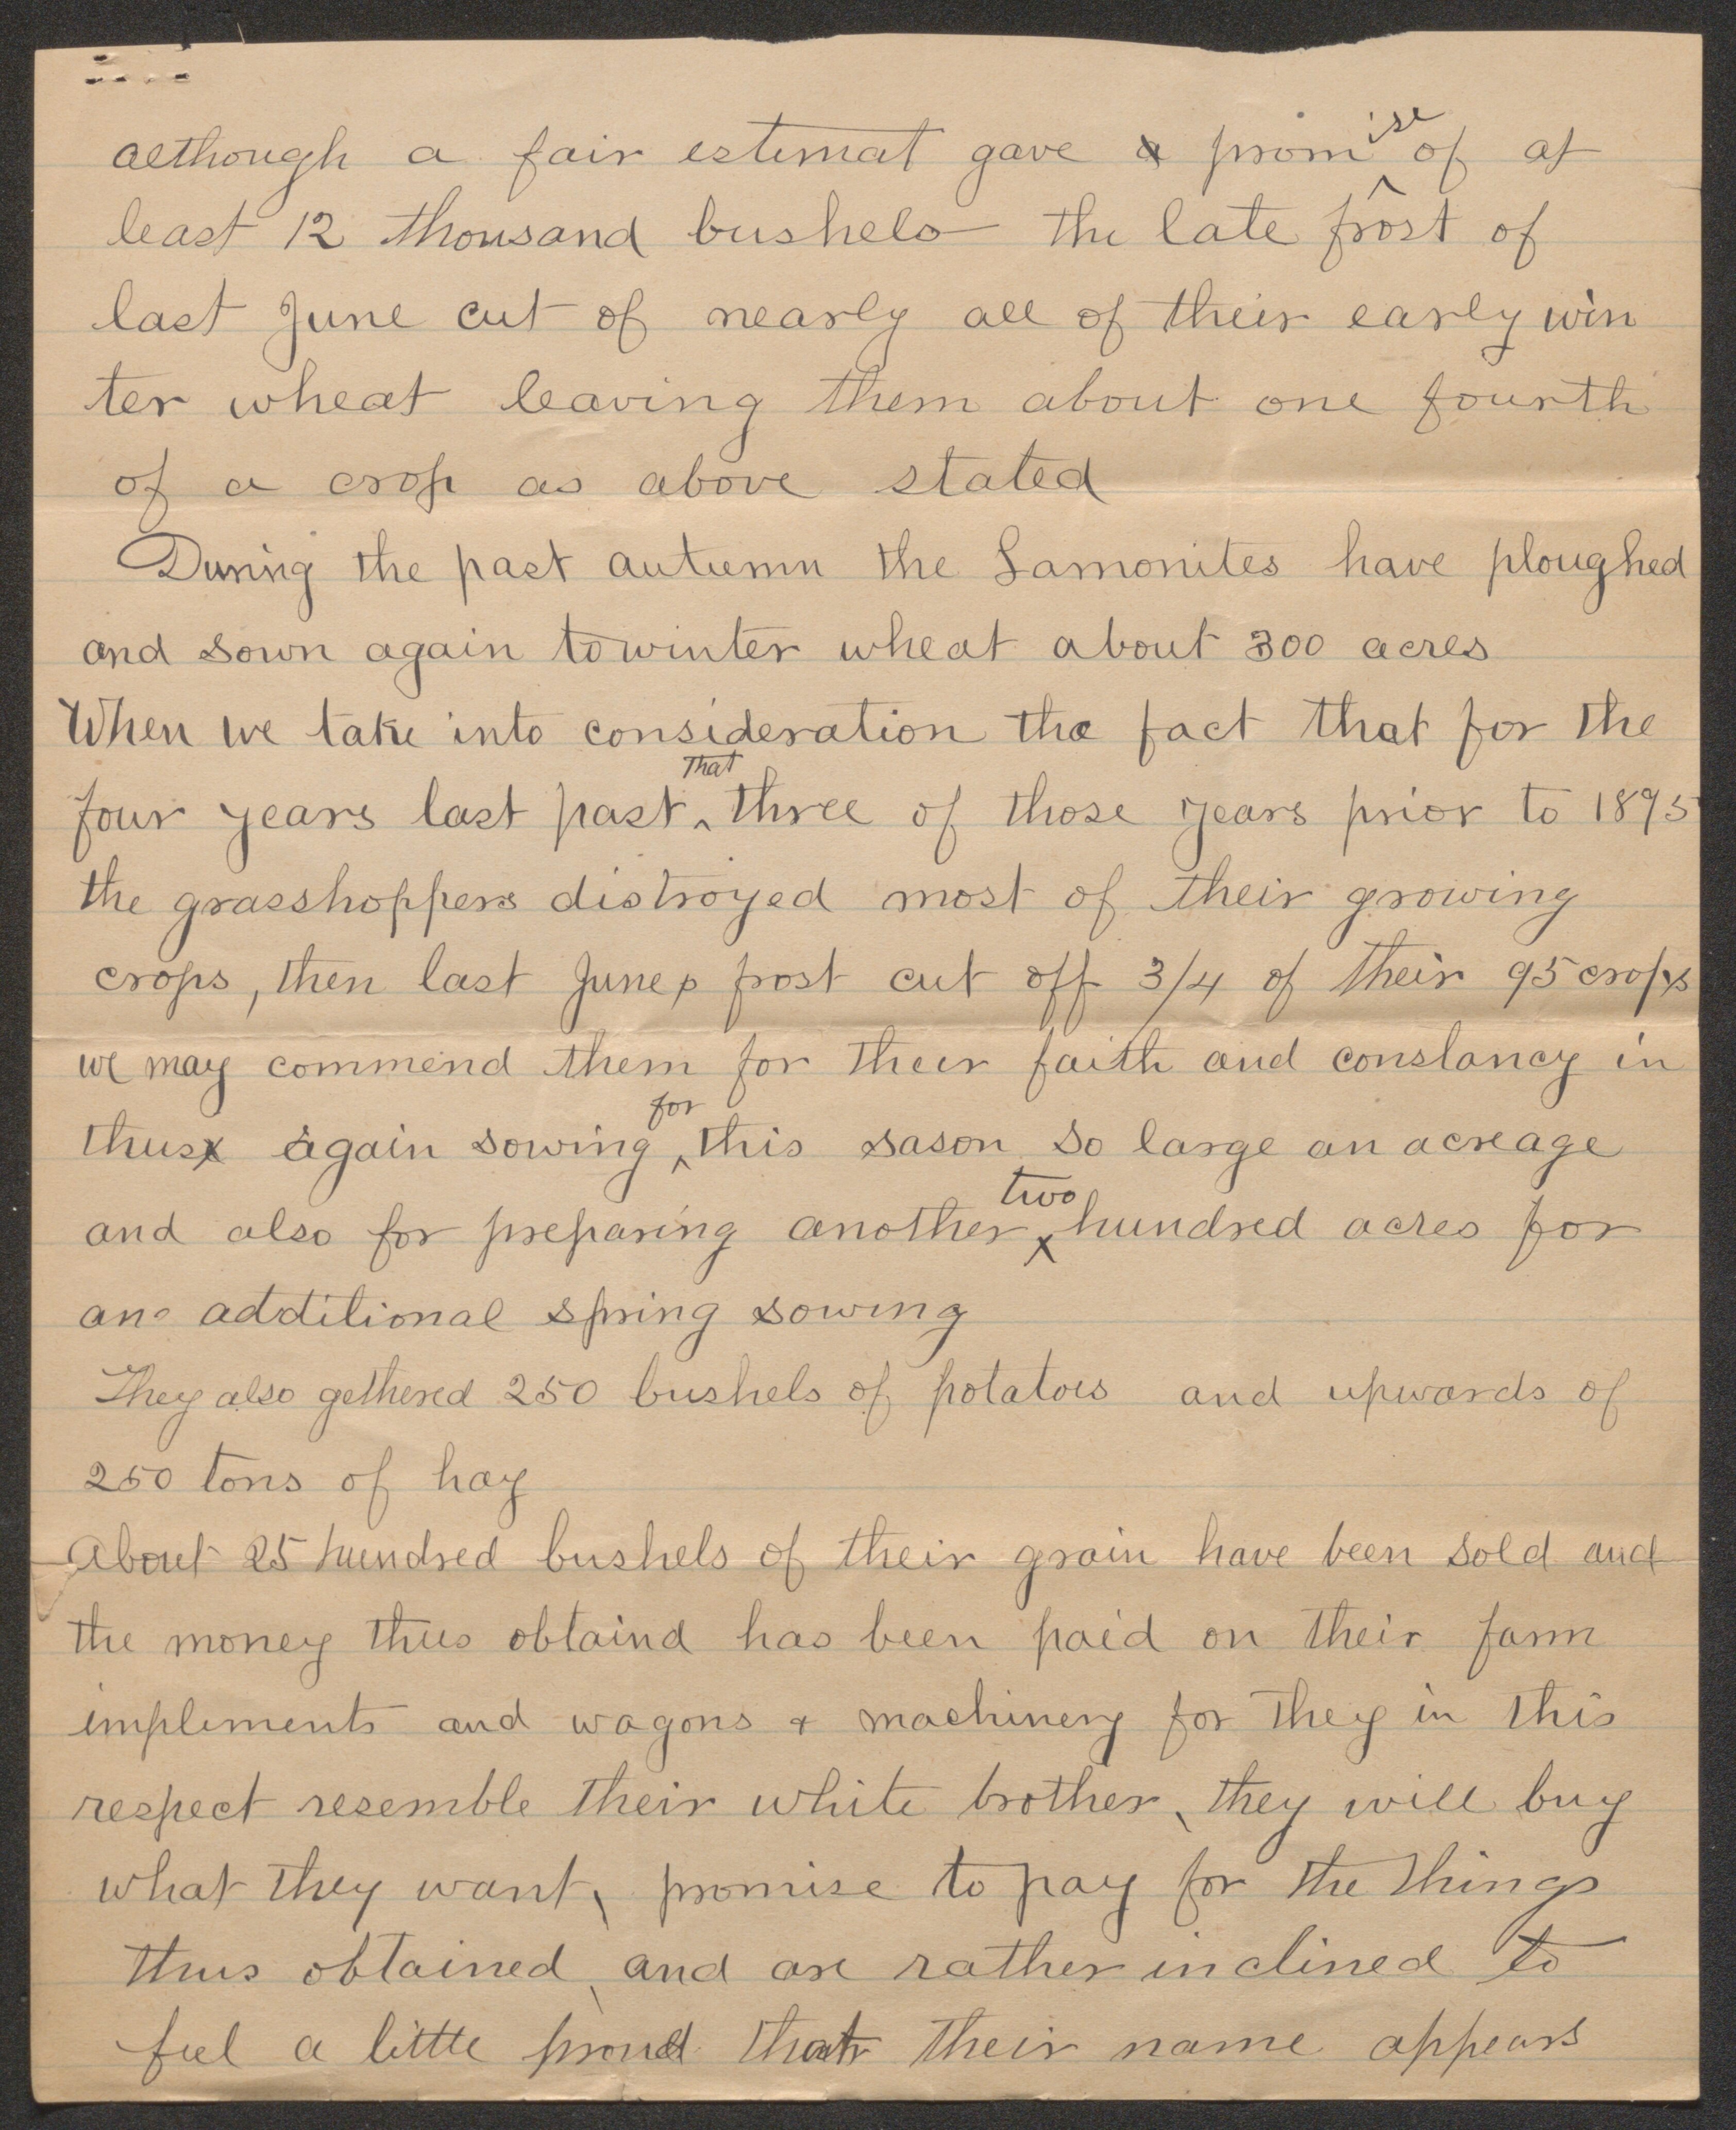 although a fair estimat gave a promise of at
least 12 thousand bushels the late frost of
last June cut of nearly all of their early win
ter wheat leaving them about one fourth
of a crop as above stated
During the past autumn the Lamonites have ploughed
and sown again to winter wheat about 300 acres
When we take into consideration the fact that for the
four years last past ^ That three of those years prior to 1895
the grasshoppers distroyed most of their growing
crops, then last Junes frost cut off 3/4 of their 95 crops
we may commend them for their faith and constancy in
thus again sowing ^ for this sason so large an acreage
and also for preparing another two hundred acres for
an additional spring sowing
They also gethered 250 bushels of potatoes and upwards of
250 tons of hay
About 25 hundred bushels of their grain have been sold and
the money thus obtaind has been paid on their farm
implements and wagons & machinery for they in this
respect resemble their white brother, they will buy
what they want, promise to pay for the things
thus obtained, and are rather inclined to
feel a little proud that their name appears